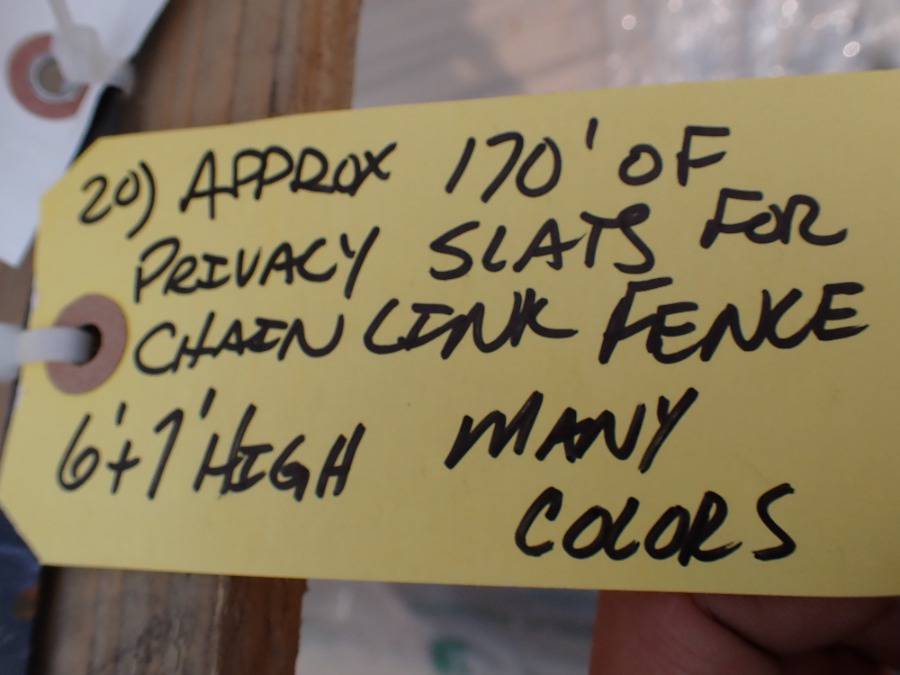 20) APPROX 170' OF
PRIVACY SLATS FOR
CHAIN LINK FENCE
6'+7' HIGH MANY
COLORS